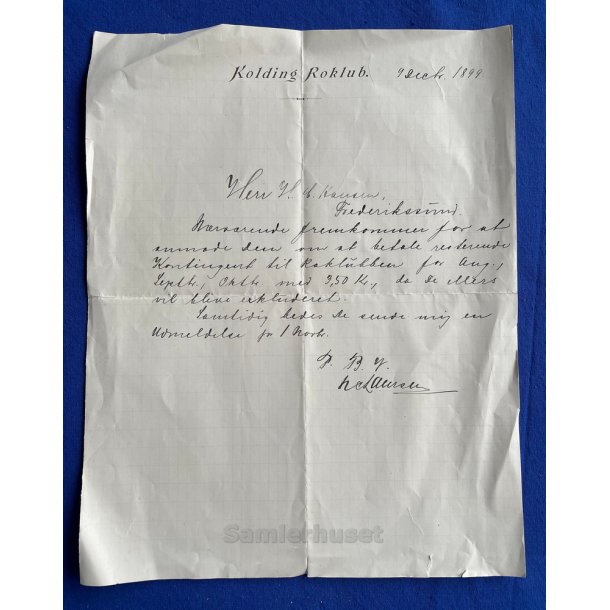 Kolding Roklub. 9 Decbr. 1899
Herr H. C. Hansen,
Frederikssund.
Nærværende fremkommer for at
anmode Dem om at betale resterende
Kontingent til Roklubben for Aug.,
Septbr., Oktbr. med 3,50 Kr., da De ellers
vil blive exkluderet.
Samtidig bedes De sende mig en
Udmeldelse pr 1 Novbr.
P. B. V.
Samlerhuset